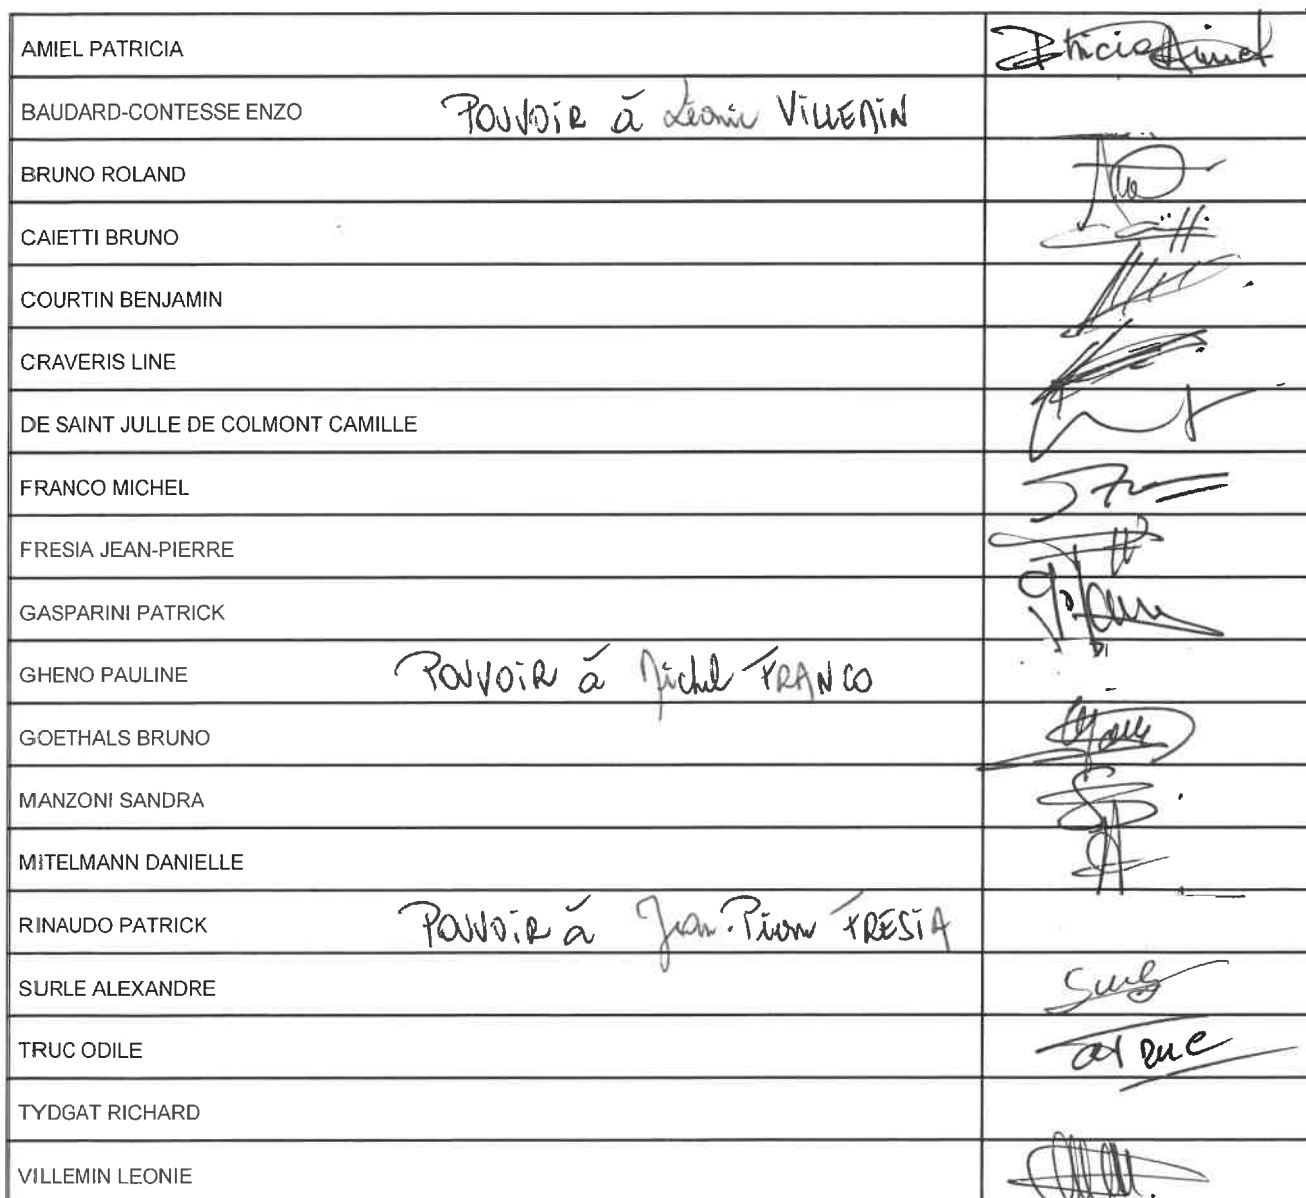 AMIEL PATRICIA Patricia Amiel
BAUDARD-CONTESSE ENZO POUVOIR à Léonie VILLEMIN
BRUNO ROLAND
CAIETTI BRUNO
COURTIN BENJAMIN
CRAVERIS LINE
DE SAINT JULLE DE COLMONT CAMILLE
FRANCO MICHEL
FRESIA JEAN-PIERRE
GASPARINI PATRICK
GHENO PAULINE POUVOIR à Michel FRANCO
GOETHALS BRUNO
MANZONI SANDRA
MITELMANN DANIELLE
RINAUDO PATRICK POUVOIR à Jean-Pierre FRESIA
SURLE ALEXANDRE Surle
TRUC ODILE Truc
TYDGAT RICHARD
VILLEMIN LEONIE